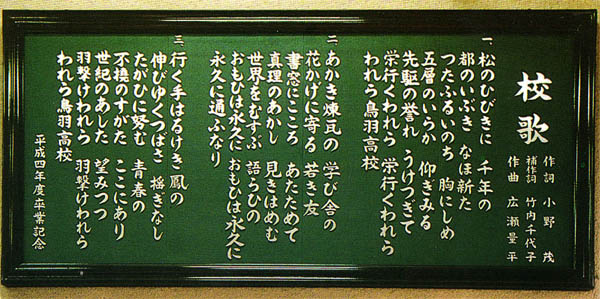 校歌
作詞 小野 茂
補作詞 竹内千代子
作曲 広瀬量平
一、松のひびきに 千年の
都のいぶき なほ新た
つたふるいのち 胸にしめ
五層のいらか 仰ぎみる
先駆の誉れ うけつぎて
栄行くわれら 栄行くわれら
われら鳥羽高校
二 あかき煉瓦の 学び舎の
花かげに寄る 若き友
書窓にこころ あたためて
真理のあかし 見きはめむ
世界をむすぶ 語らひの
おもひは永久に おもひは永久に
永久に通ふなり
三 行く手はるけき 鳳の
伸びゆくつばさ 揺ぎなし
たがひに努む 青春の
不撓のすがた ここにあり
世紀のあした 望みつつ
羽撃けわれら 羽撃けわれら
われら鳥羽高校
平成四年度卒業記念